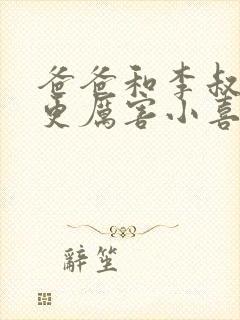 爸爸和李叔
更厲害小喜
辭笙